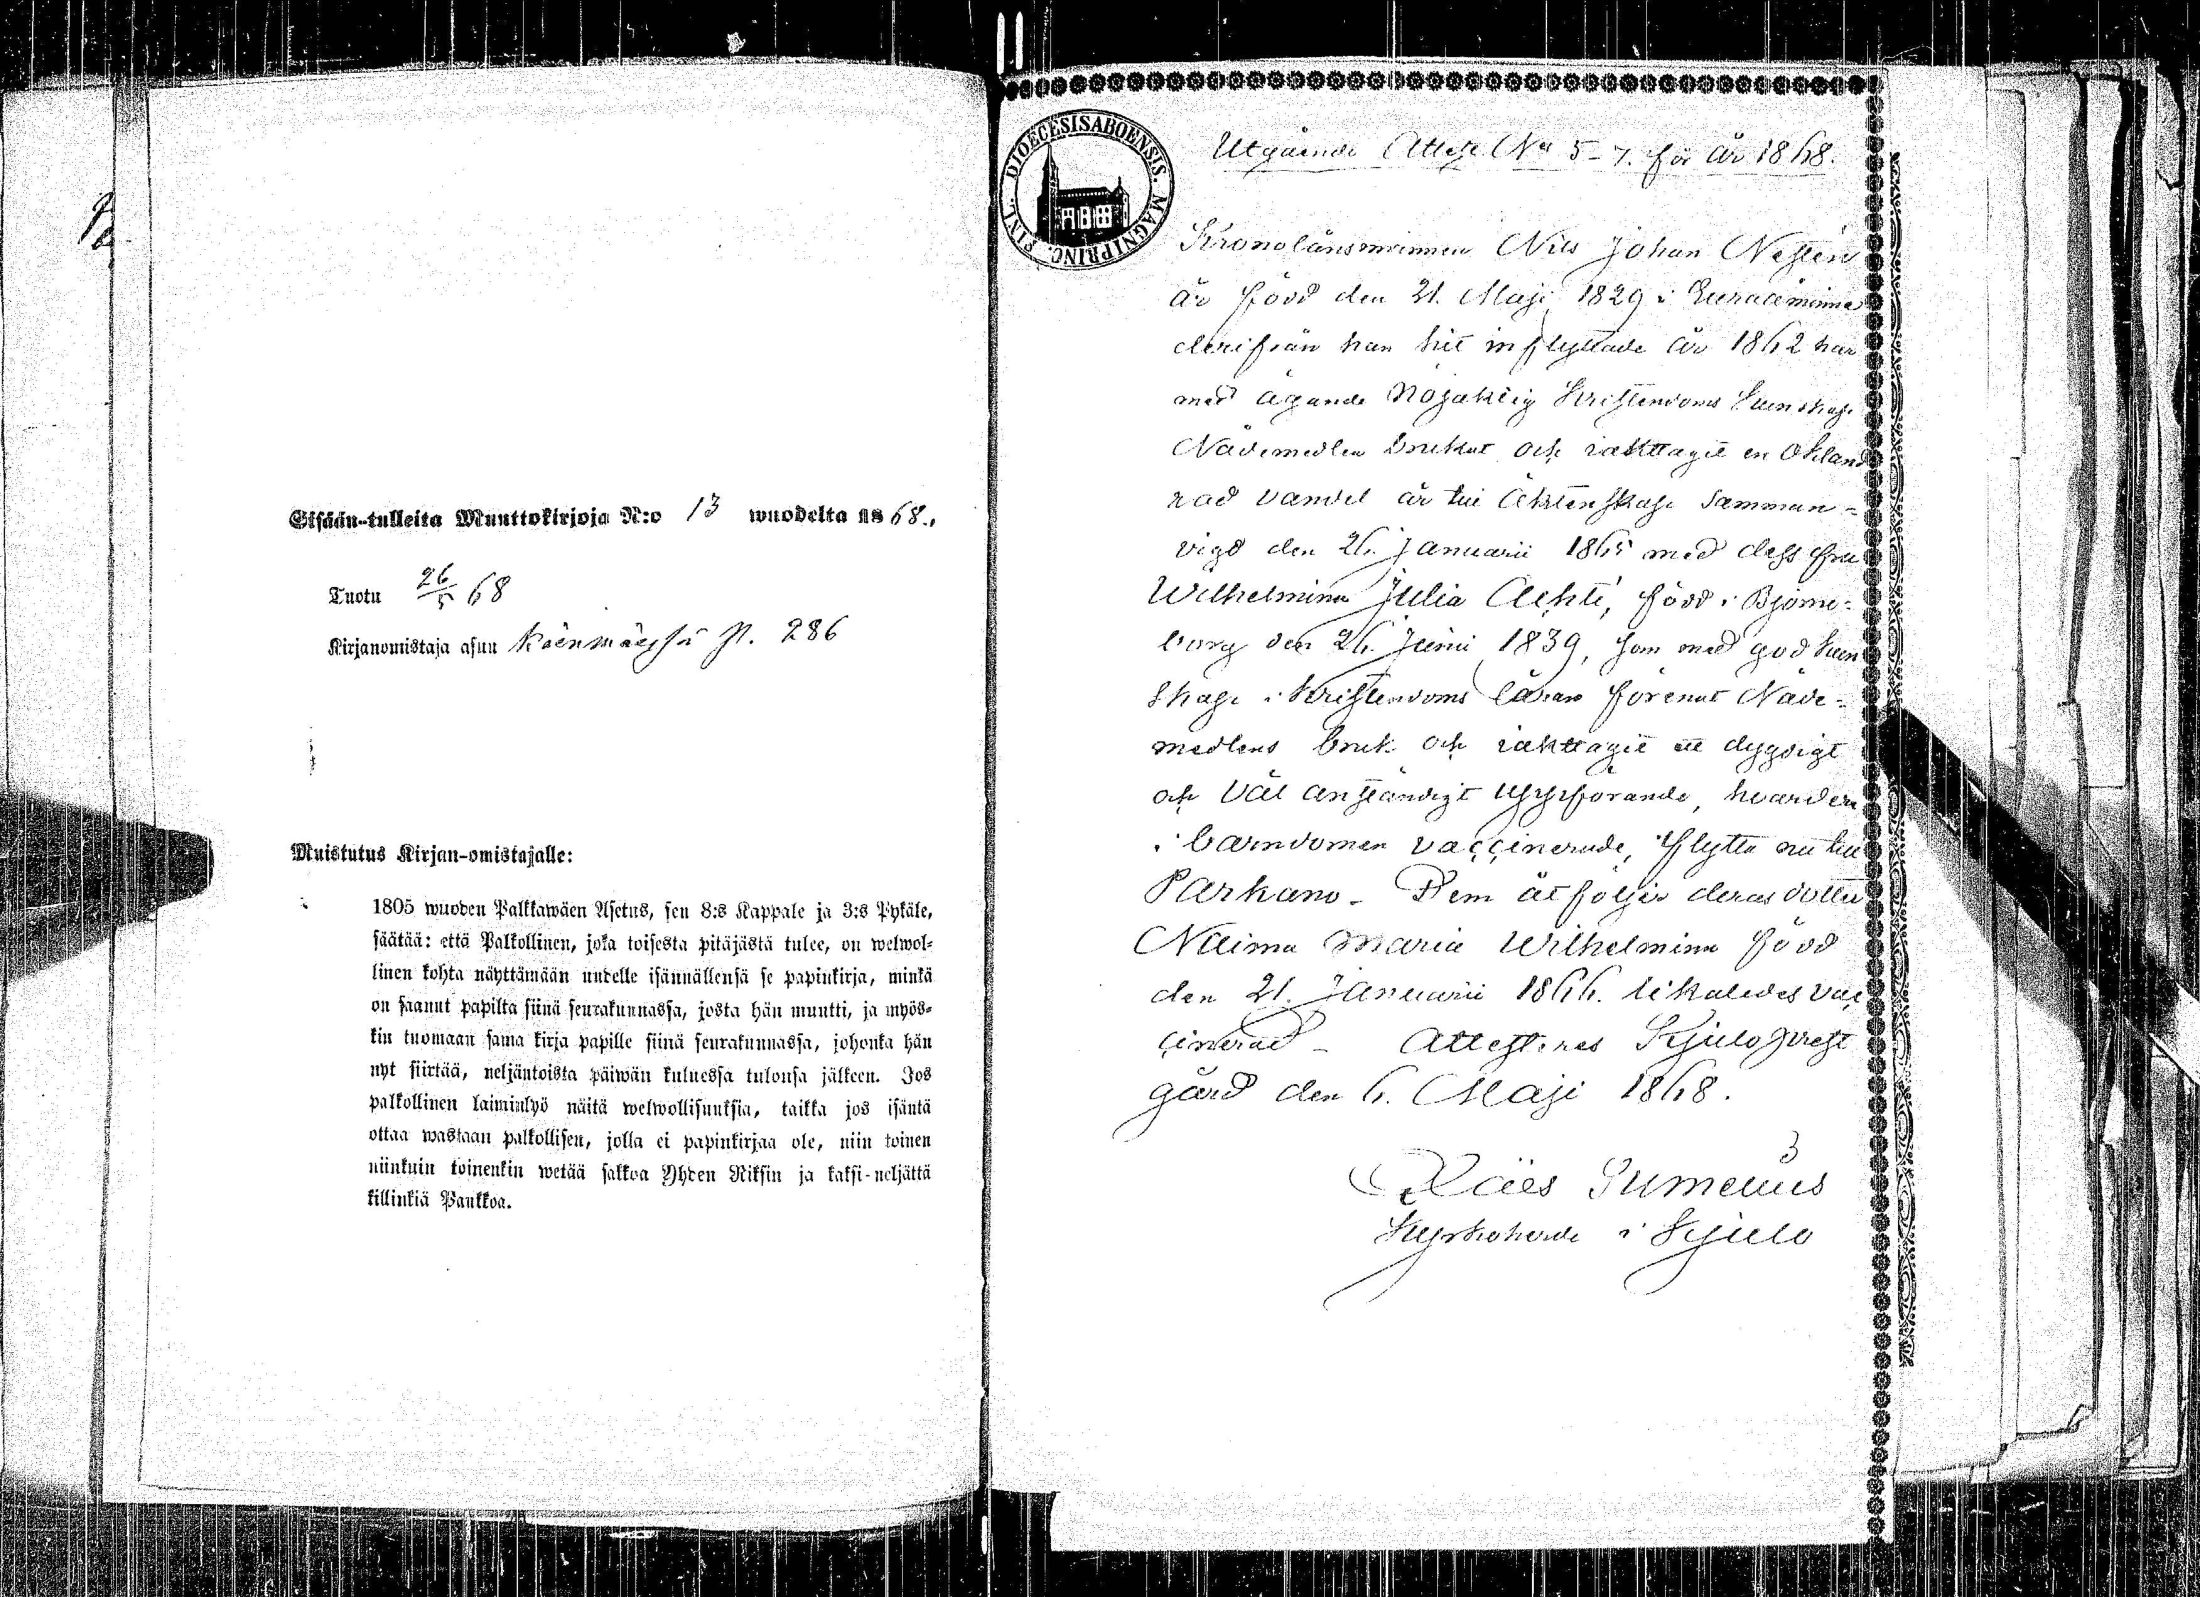 Sisään-tulleita Muuttokirjoja N:o 13 wuodelta 1868.
Tuotu 26/5 68
Kirjanomistaja asuu p. 286
Muistutus Kirjan-omistajalle:
1805 wuoden Palkkawäen Asetus, sen 8:s Kappale ja 3:s Pykäle,
säätää: että Palkollinen, joka toisesta pitäjästä tulee, on welwol-
linen kohta näyttämään uudelle isännällensä se papinkirja, minkä
on saanut papilta siinä seurakunnassa, josta hän muutti, ja myös-
kin tuomaan sama kirja papille siinä seurakunnassa, johonka hän
nyt siirtää, neljäntoista päiwän kuluessa tulonsa jälkeen. Jos
palkollinen laiminlyö näitä welwollisuuksia, taikka jos isäntä
ottaa wastaan palkollisen, jolla ei papinkirjaa ole, niin toinen
niinkuin toinenkin wetää sakkoa Yhden Riksin ja kaksi-neljättä
killinkiä Pankkoa.
DIOECESIS ABOENSIS. MAGNI PRINC. FINL.
Utgående Attest No 5-7. för år 1868.
Kronolänsmannen Nils Johan
är född den 21. Maji 1829 i Euraåminne
derifrån han hit inflyttade år 1862 har
med ägande nöjaktig Kristendoms kunskap
Nådemedlen brukat och iakttagit en okland
rad vandel är till Äktenskap samman=
vigd den 26. Januarii 1865 med dess fru
Wilhelmina Julia född i Björne=
borg den 26. Junii 1839, som med god kun
skap i kristendoms läran förenat Nåde=
medlens bruk och iakttagit ett dygdigt
och väl anständigt uppförande, hvardera
i barndomen vaccinerade, flytta nu till
Parkano. Dem åtföljer deras dotter
Naima Maria Wilhelmina född
den 21. Januarii 1866. likaledes vac
cinerad - Attesteras Kjulo prest
gård den 6. Maji 1868.
Kyrkoherde i Kjulo